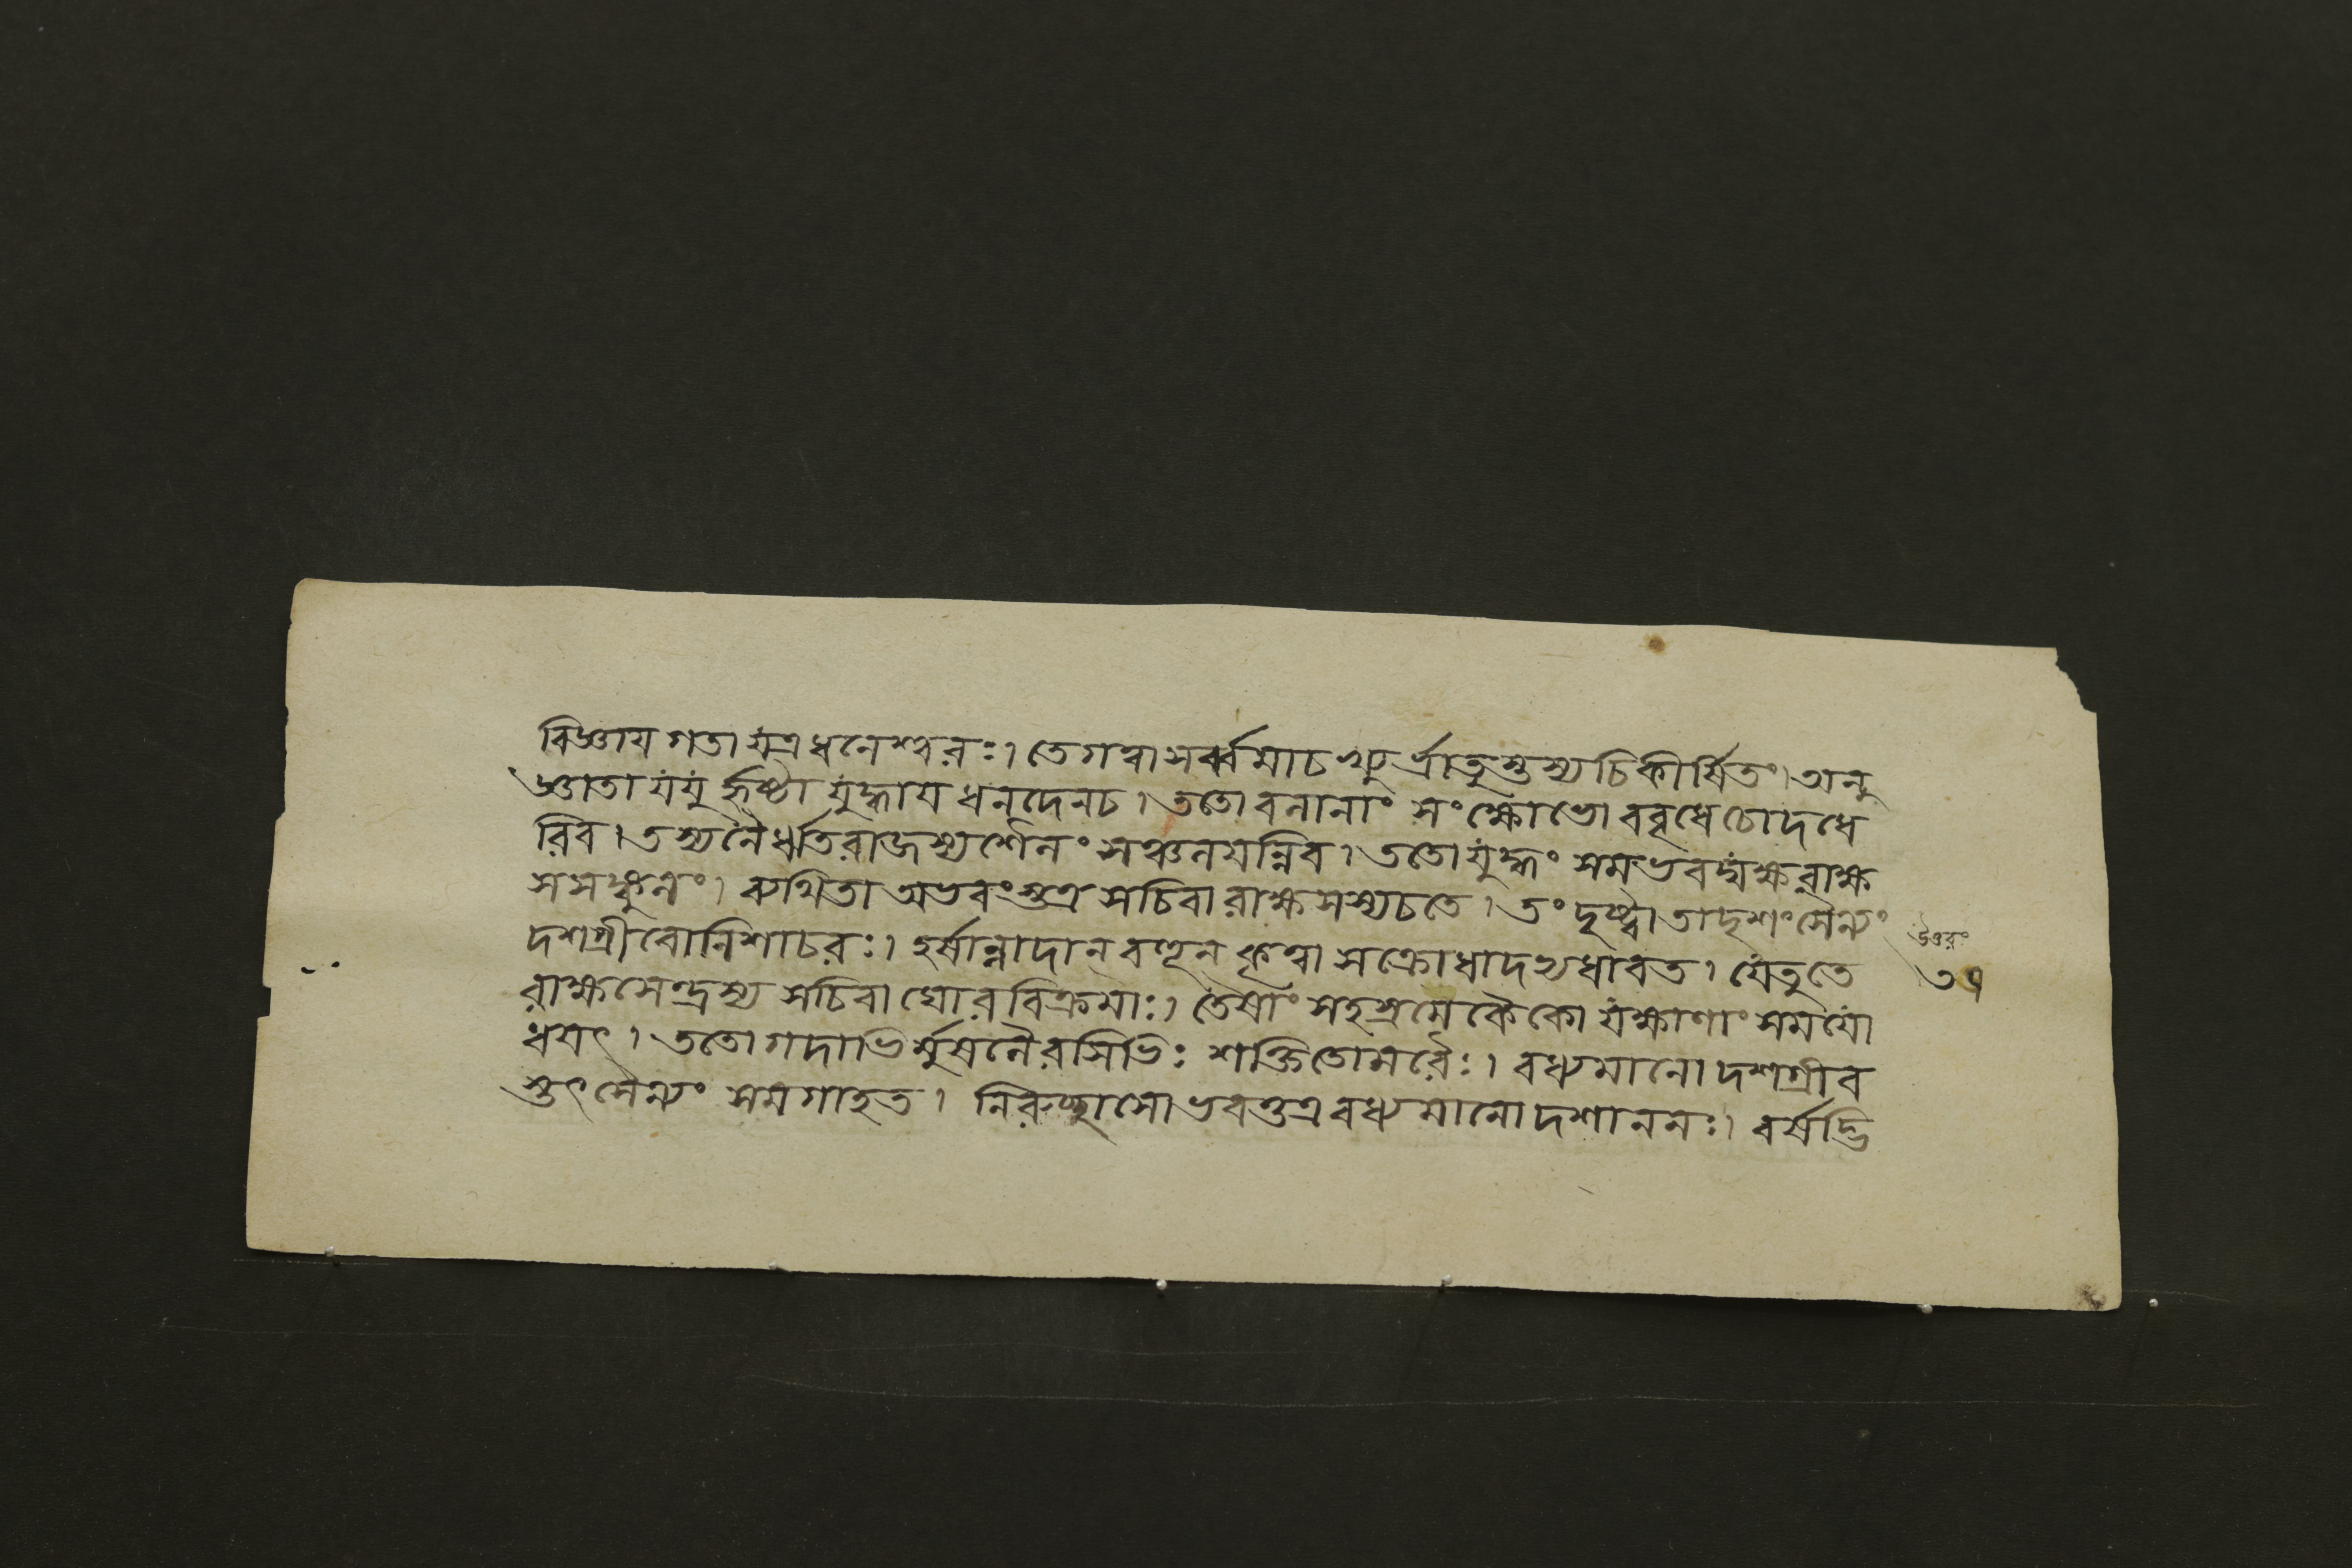 বিজ্ঞায গতা যত্র ধনেশ্বরঃ। তে গত্বা সর্ব্বমাচখ্যুর্ভ্রাতুস্তস্য চিকীর্ষিতং। অনু
জ্ঞাতা যযুর্হৃষ্টা যুদ্ধায ধনদেন চ। ততো বনানাং সংক্ষোভো ববৃধে চোদধে
রিব। তস্য নৈর্ঋতরাজস্য শৈলং সঞ্চলযন্নিব। ততো যুদ্ধং সমভবদ্যক্ষরাক্ষ
সসঙ্কুলং। ব্যথিতা অভবংস্তত্র সচিবা রাক্ষসস্য চ তে। তং দৃষ্ট্বা তাদৃশং সৈন্যং
দশগ্রীবো নিশাচরঃ। হর্ষান্নাদান্ বহূন্ কৃত্বা স ক্রোধাদভ্যধাবত। যে তু তে
রাক্ষসেন্দ্রস্য সচিবা ঘোরবিক্রমাঃ। তেষাং সহস্রমেকৈকো যক্ষাণাং সমযো
ধযৎ। ততো গদাভির্মুষলৈরসিভিঃ শক্তিতোমরৈঃ। বধ্যমানো দশগ্রীব
স্তৎ সৈন্যং সমগাহত। নিরুচ্ছ্বাসো ভবত্তত্র বধ্যমানো দশাননঃ। বর্ষদ্ভি
উত্তরং
৩৭